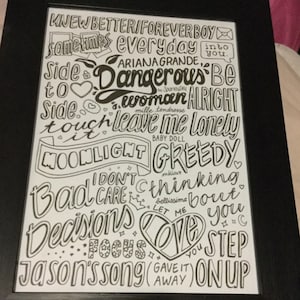 KNEW BETTER/FOREVER BOY
Sometimes
everyday
into
you
ARIANA GRANDE
side
to
side
Dangerous
woman
Be
ALRIGHT
touch it
leave me lonely
BABY DOLL
MOONLIGHT
GREEDY
I DON'T
CARE
thinking
bout
you
Bad
Decisions
bellissima
LET ME
LOVE
YOU
FOCUS
STEP
ON UP
Jason's song
(GAVE IT
AWAY)